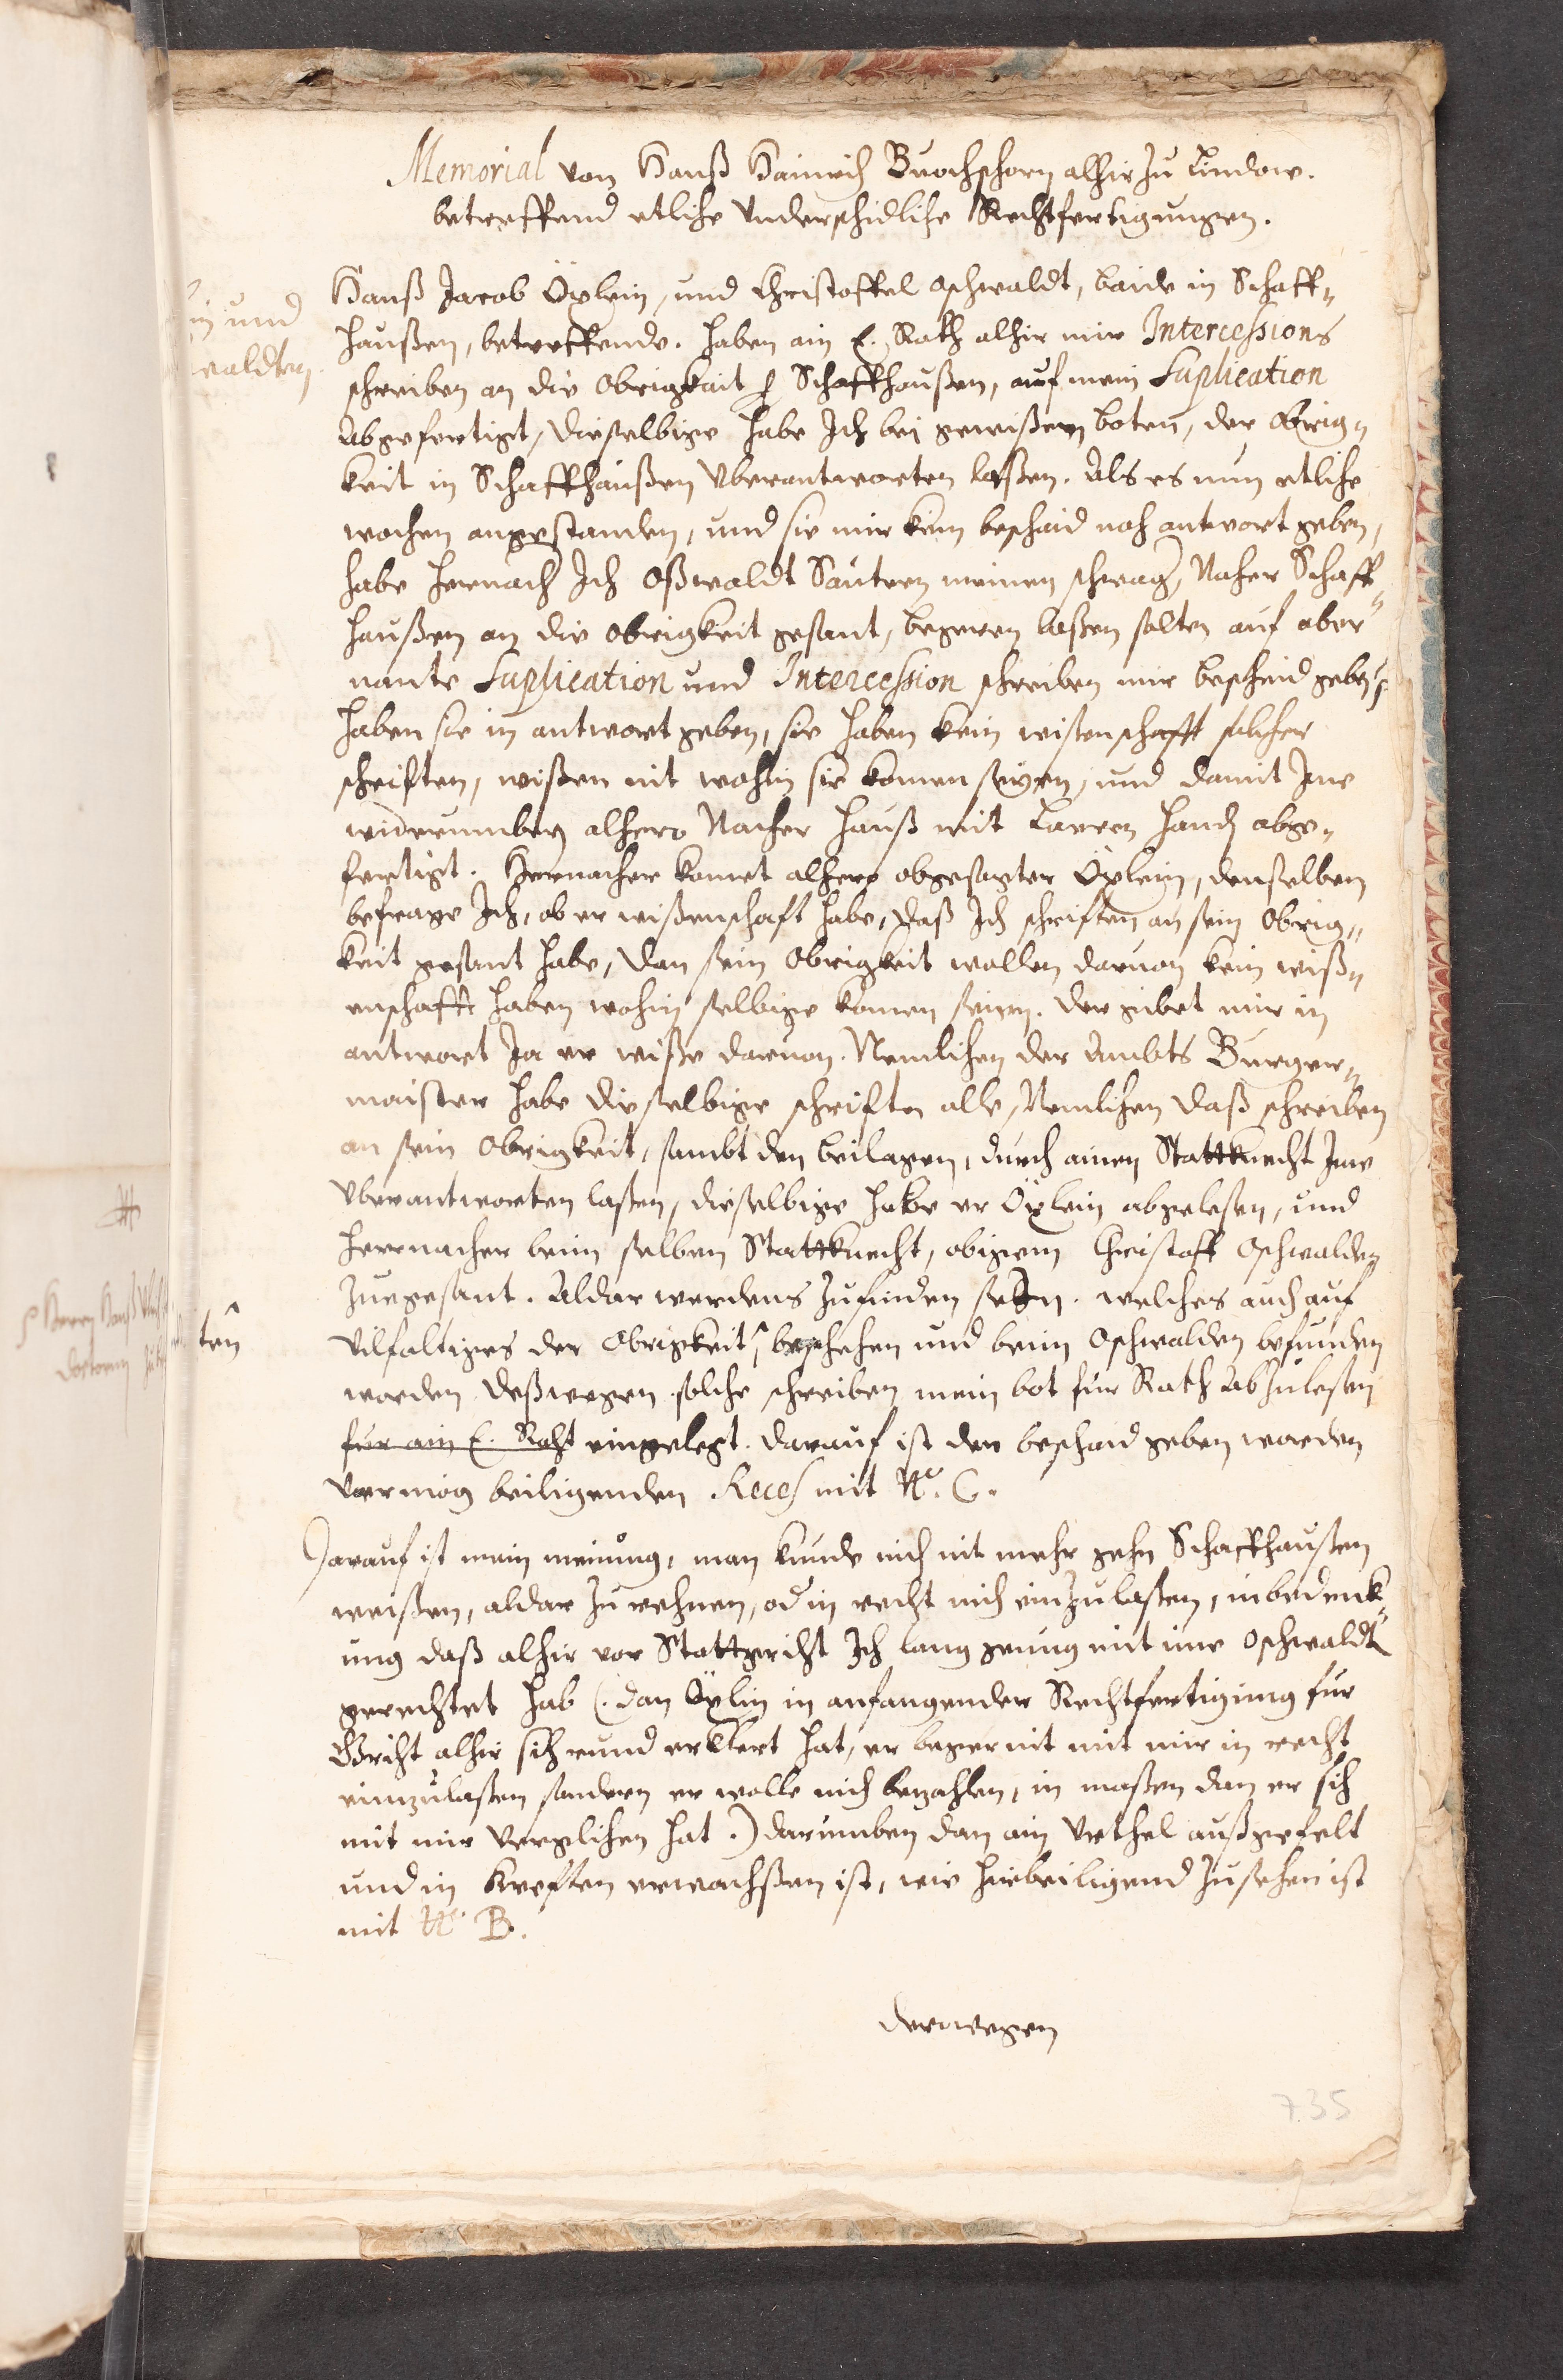 Memorial von Hanß Hainrich Buochschorn alhir zu Lindow.
betreffend etliche Underschidliche Rechtfertigungen.
in und
waldten
Hanß Jacob Öxlein, und Christoffel Oschwaldt, baide in Schaff-
haußen, betreffende. haben ain E. Rath alhir mir Intercessions
schreiben an die Obrigkait Schaffhaußen, auf mein Suplication
Abgefertigt, dieselbige habe Ich bei gewißem boten, der Obrig-
keit in Schaffhaußen Uberantworten laßen. Als es nun etliche
wochen angestanden, und sie mir kein beschaid noch antwort geben,
habe hernach Ich Oßwaldt Sautern meinen schwager, Nacher Schaff-
haußen an die Obrigkeit gesant, begeren laßen solten auf ober-
nante Suplication und Intercession schreiben mir bescheid geben,
haben sie in antwort geben, sie haben kein wißenschafft solcher
schriften, wißen nit wohin sie komen seyen, und damit Ine
widerumben alhero Nacher Hauß mit Laeren hand abge-
fertigt. Hernacher komet alhero obgesagter Öxlein, denselben
befrage Ich, ob er wißenschaft habe, daß Ich schriften an sein Obrig-
keit gesant habe, dan sein Obrigkeit wollen daruon kein wiß-
enschafft haben wohin selbige komen seigen. der gibet mir in
antwort Ja er wiße daruon. Nemlichen der Ambts Burger-
maister habe dieselbige schriften alle, Nemlichen daß schreiben
an sein Obrigkeit, sambt den beilagen, durch ainen Stattknecht Ime
Uberantworten laßen, dieselbige habe er Öxlein abgelesen, und
hernacher beim selben Stattknecht, obigem Christoff Oschwalden
zuegesant. Aldar werdens zufinden sein. welches auch auf
ten
Vilfaltiges der Obrigkeit beschehen und beim Oschwalden befunden
worden. deßwegen solche schreiben mein bot für Rath Abzulesen
für ain E. Raht eingelegt. darauf ist der beschaid geben worden
Vermög beiligenden Reces mit No. C.
Darauf ist mein meinung, man künde mich nit mehr gehn Schaffhaußen
weißen, aldar zu rechnen, od in recht mich einzulaßen, in bedenk-
ung daß alhir vor Stattgericht Ich lang genug mit ime Oschwaldt
gerechtet hab (. dan Öxlin in anfangender Rechtfertigung für
Gricht alhir sich rund erklert hat, er beger nit mit mir in recht
einzulaßen sondern er wolle mich bezahlen, in maßen dan er sich
mit mir Verglichen hat .) darumben dan ain Urthel außgefelt
und in Kreften erwachßen ist, wie hirbeiligend zusehen ist
mit No. B.
derwegen
735